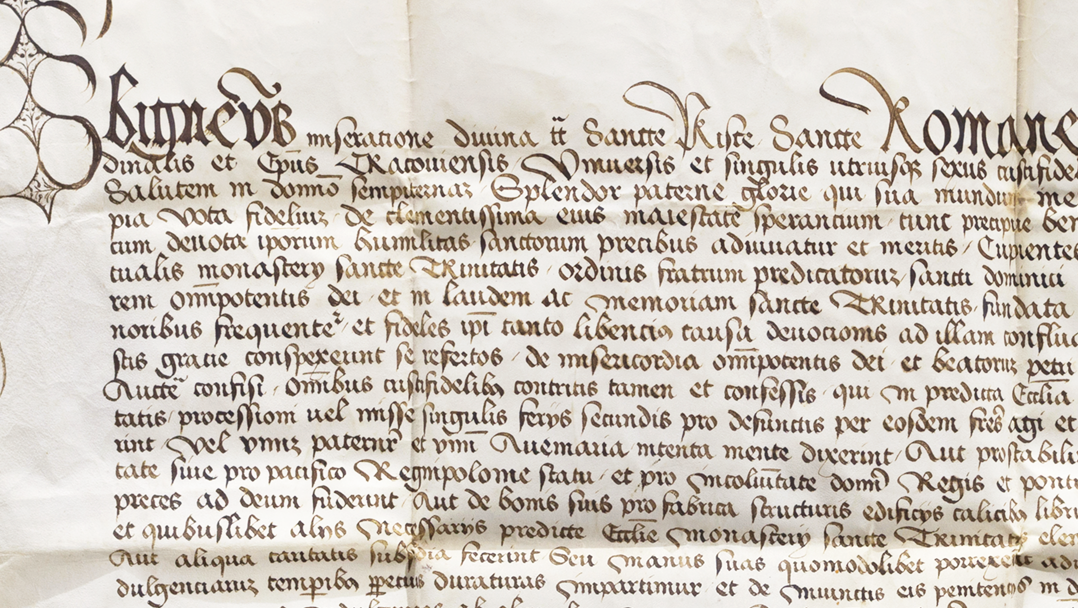 Sbigneus miseratione divina tt Sancte Prisce Sancte Romane
dinalis et Epus Cracouiensis Vniuersis et singulis utriusq sexus cristifide
Salutem in domno sempiternaz Splendor paterne glorie qui sua mundum me
pia vota fideliuz de clementissima eius maiestate sperancium tunc precipue ben
cum deuota ipsorum humilitas sanctorum precibus adiuuatur et meritis Cupientes
tualis monastery sancte Trinitatis ordinis fratrum predicatoruz sancti dominici
rem omipotentis dei et in laudem ac memoriam sancte Trinitatis fundata
noribus frequente et fideles ipi tanto libencius causa deuocionis ad illam conflu
stis gracie conspexerint se refertos de misericordia omipotentis dei et beatoruz petri
Aucte confisi omibus cristifidelibus contritis tamen et confessis qui in predicta Ecclia
tatis processioni uel misse singulis ferys secundis pro defunctis per eosdem fres agi et
rint Vel vnuz paternr et vnu Auemaria intenta mente dixerint Aut prostabili
tate siue pro pacifico Regnipolonie statu et pro incoluitate domi Regis et ponti
preces ad deum fuderint Aut de bonis suis pro fabrica structuris edificys calicibus libri
et quibuslibet alys necessarys predicte Ecclie monastery sancte Trinitatis elem
Aut aliqua caritatis subsidia fecerint Seu manus suas quomodolibet porrexerint adi
dulgenciaruz temporibus perpetuis duraturas impartimur et de iniunctis eis penitencys in d